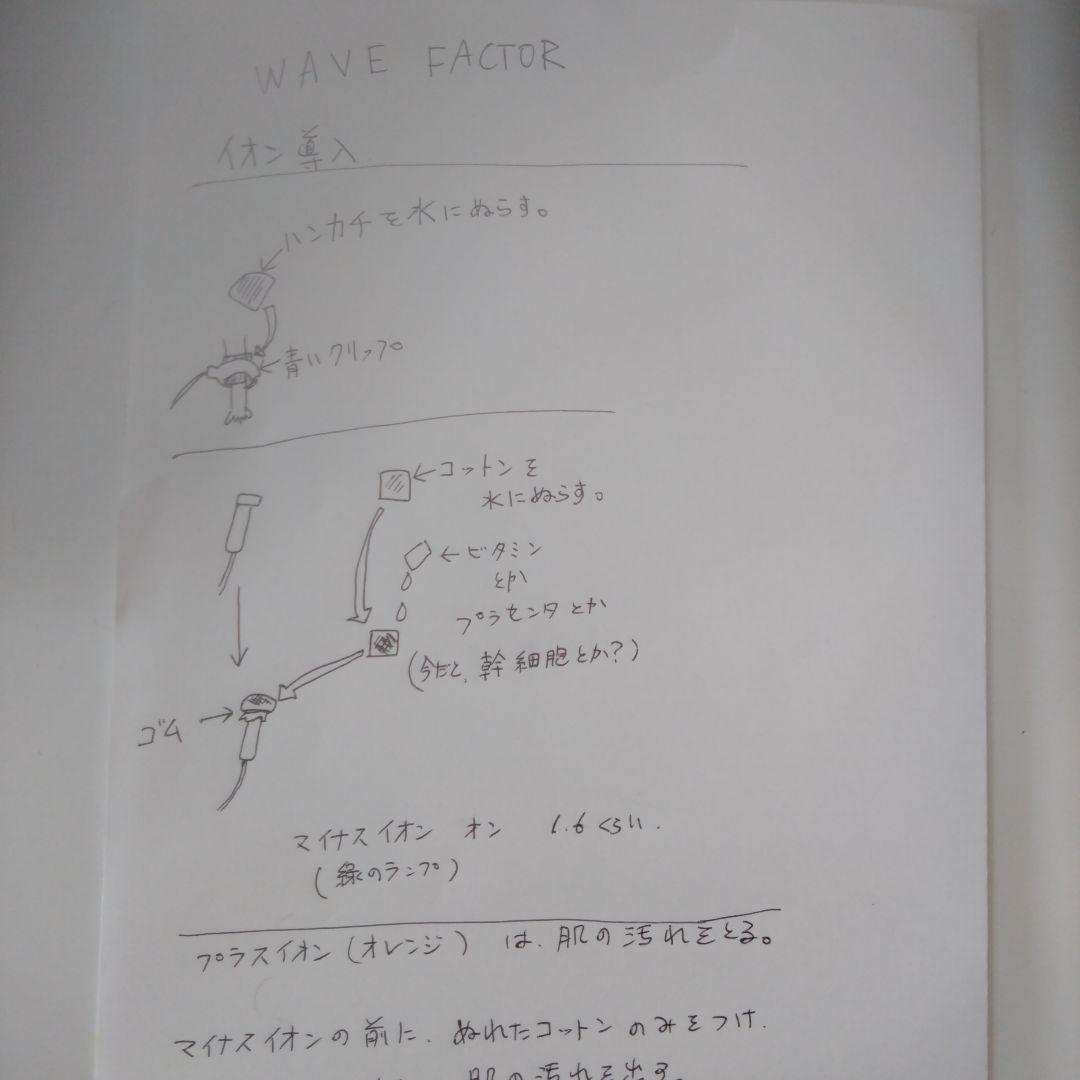 WAVE FACTOR
イオン導入
ハンカチを水にぬらす。
青いクリップ
コットンを
水にぬらす。
ビタミン
とか
プラセンタとか
(今だと、幹細胞とか?)
ゴム
マイナスイオン オン 1.6くらい.
(緑のランプ)
プラスイオン(オレンジ) は、肌の汚れをとる。
マイナスイオンの前に、ぬれたコットンのみをつけ、
肌の汚れを出す。